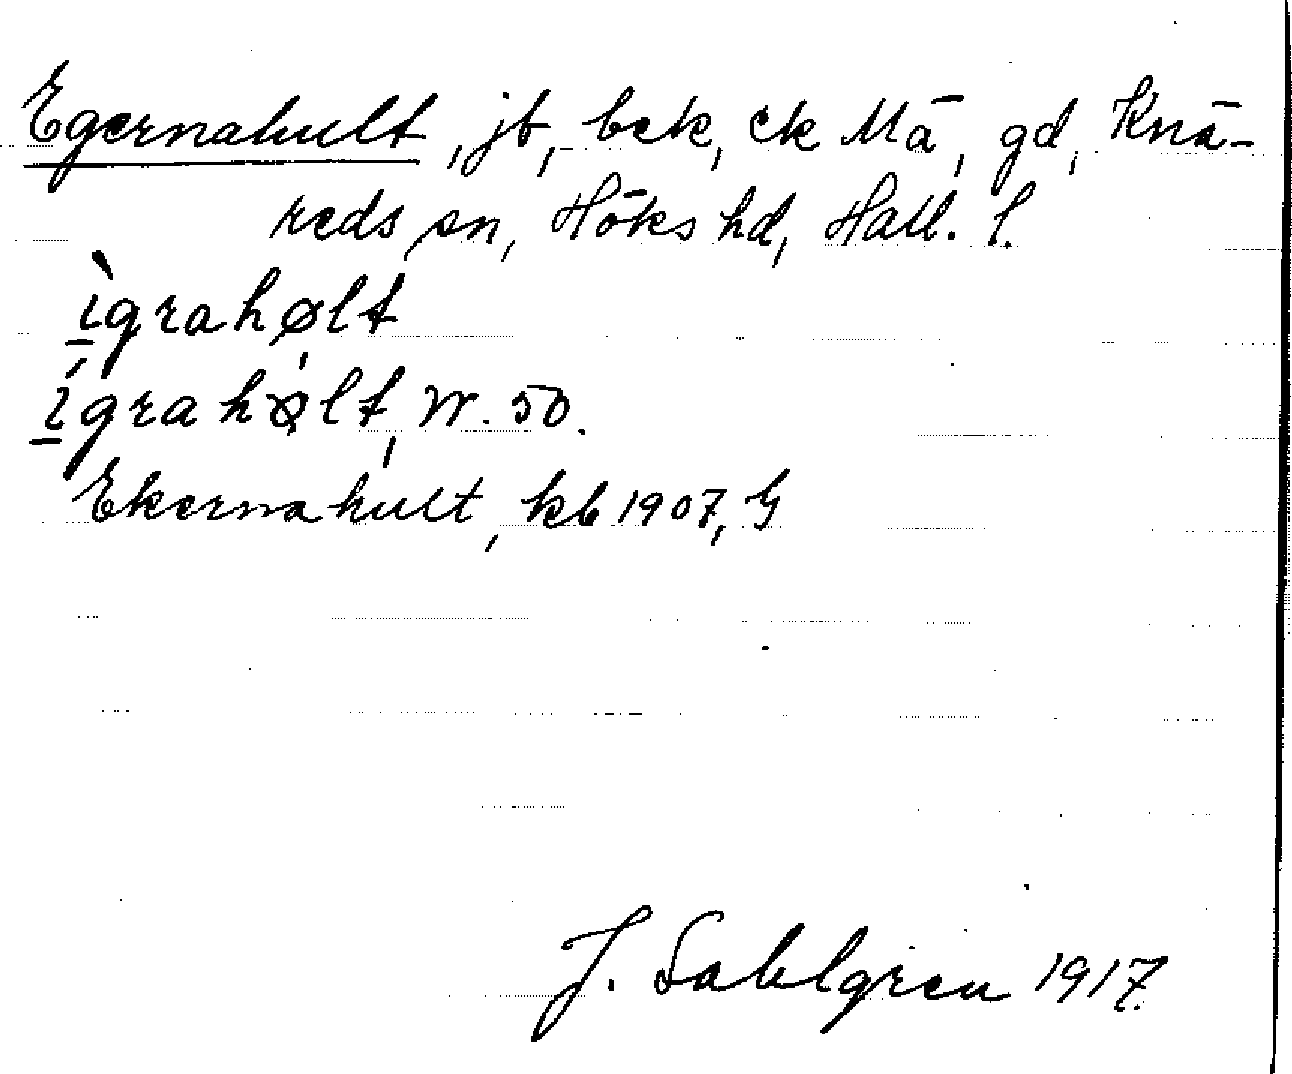 Egernahult, jb, bek, ek Mā, gd, Knä-
reds sn, Höks hd, Hall. l.
ìgrahølt
ígrahølt, W. 50.
Ekernahult, kb 1907, G
J. Sahlgren 1917.